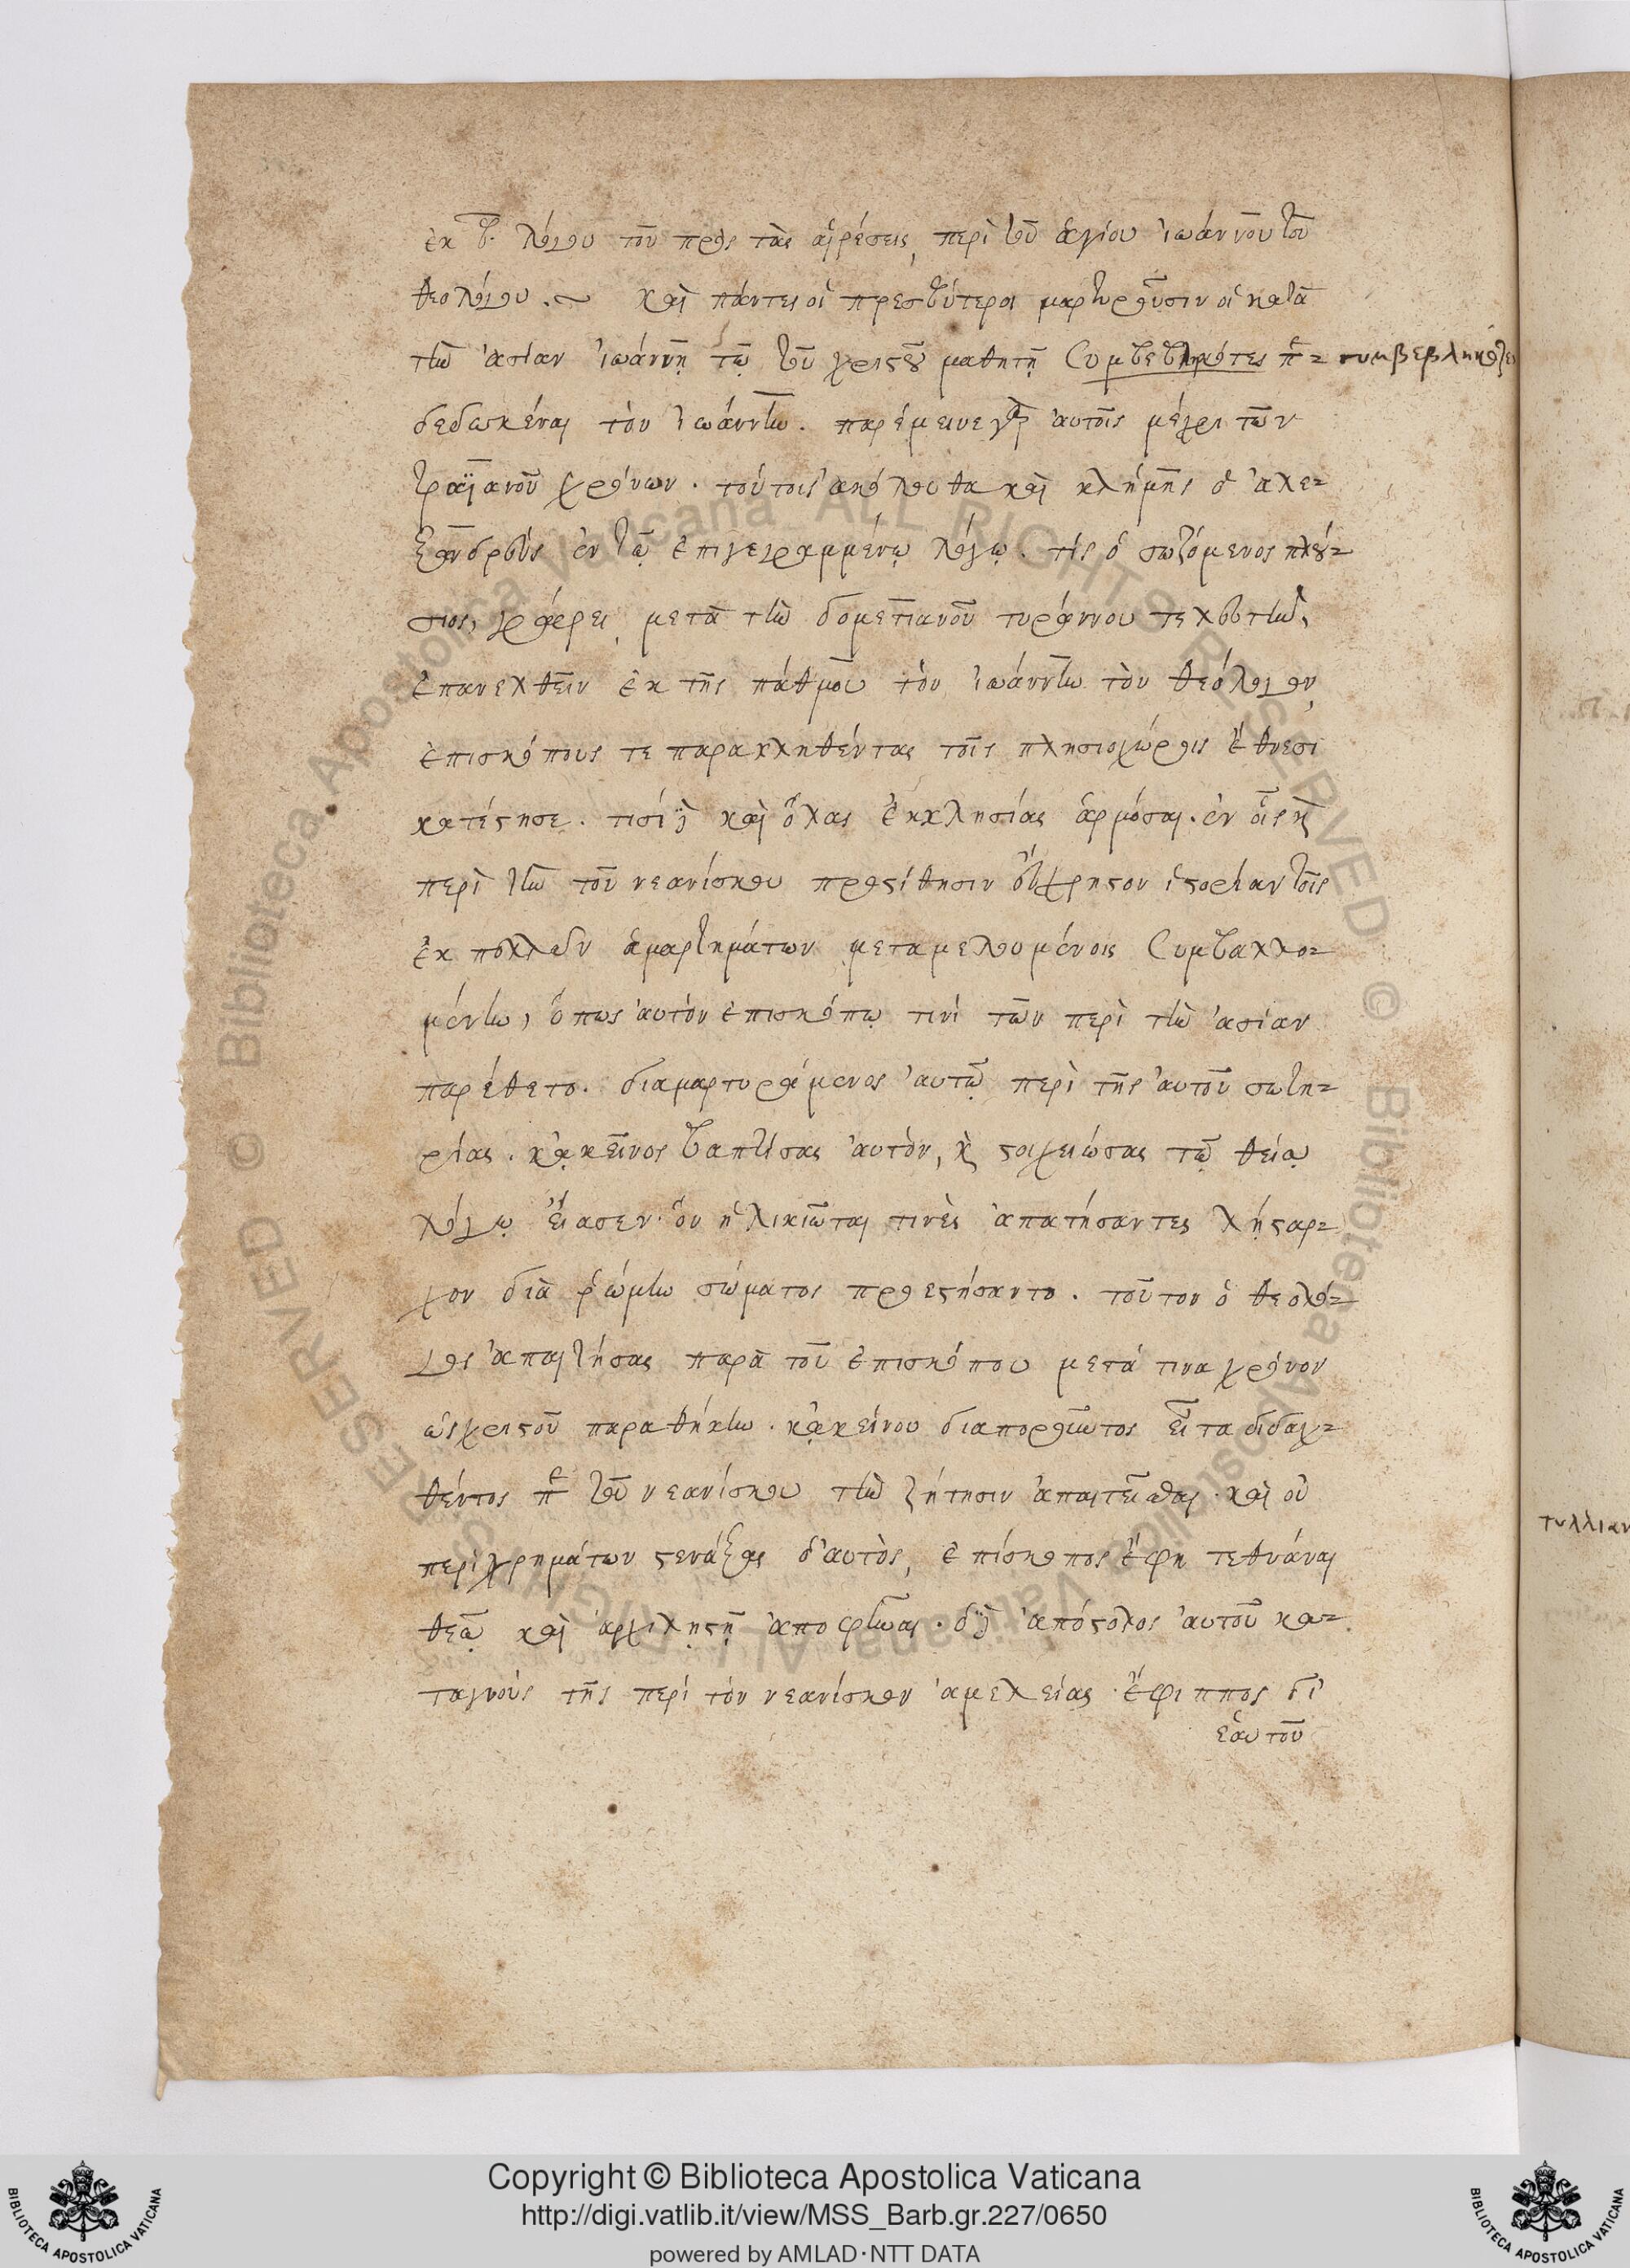 ἐκ β. λόγου τοῦ πρὸς τὰς αἱρέσεις, περὶ τοῦ ἁγίου ἰωάννου τοῦ
θεολόγου. καὶ πάντες οἱ πρεσβύτεροι μαρτυροῦσιν οἱ κατὰ
τὴν ἀσίαν ἰωάννῃ τῷ τοῦ χριστοῦ μαθητῇ συμβεβληκότες π= συμβεβληκότες
δεδωκέναι τὸν ἰωάννην. παρέμεινε γὰρ αὐτοῖς μέχρι τῶν
τραϊανοῦ χρόνων. τούτοις ἀκόλουθα καὶ κλήμης ὁ ἀλε=
ξανδρεὺς ἐν τῷ ἐπιγεγραμμένῳ λόγῳ. τίς ὁ σωζόμενος πλού=
σιος, γράφει, μετὰ τὴν δομετιανοῦ τυράννου τελευτὴν,
ἐπανελθεῖν ἐκ τῆς πάθμου τὸν ἰωάννην τὸν θεόλογον,
ἐπισκόπους τε παρακληθέντας τοῖς πλησιοχώροις ἔθνεσι
κατέστησε. τισὶ δὲ καὶ ὅλας ἐκκλησίας ἁρμόσαι. ἐν οἷς καὶ
περὶ τὴν τοῦ νεανίσκου προστίθησιν εὔχρηστον ἱστορίαν τοῖς
ἐκ πολλῶν ἁμαρτημάτων μεταμελουμένοις συμβαλλο=
μένην, ὅπως αὐτὸν ἐπισκόπῳ τινὶ τῶν περὶ τὴν ἀσίαν
παρέθετο. διαμαρτυράμενος αὐτῷ περὶ τῆς αὐτοῦ σωτη=
ρίας. κᾀκεῖνος βαπτίσας αὐτὸν, καὶ στοιχειώσας τῷ θείῳ
λόγῳ εἴασεν. ὃν ἡλικιῶται τινὲς ἀπατήσαντες λῄσταρ=
χον διὰ ῥώμην σώματος προεστήσαντο. τοῦτον ὁ θεολό=
γος ἀπαιτήσας παρὰ τοῦ ἐπισκόπου μετά τινα χρόνον
ὡς χριστοῦ παραθήκην. κᾀκείνου διαποροῦντος εἶτα διδαχ=
θέντος περὶ τοῦ νεανίσκου τὴν ζήτησιν ἀπαιτεῖσθαι. καὶ οὐ
περὶ χρημάτων στενάξας δ' αὐτὸς, ἐπίσκοπος ἔφη τεθνάναι
θεῷ καὶ ἀρχιλῃστῇ ἀποφῆναι. ὁ δὲ ἀπόστολος αὐτοῦ κα=
ταγνοὺς τῆς περὶ τὸν νεανίσκον ἀμελείας. ἔφιππος δι'
ἑαυτοῦ
τυλλιαν
Copyright © Biblioteca Apostolica Vaticana
http://digi.vatlib.it/view/MSS_Barb.gr.227/0650
powered by AMLAD·NTT DATA